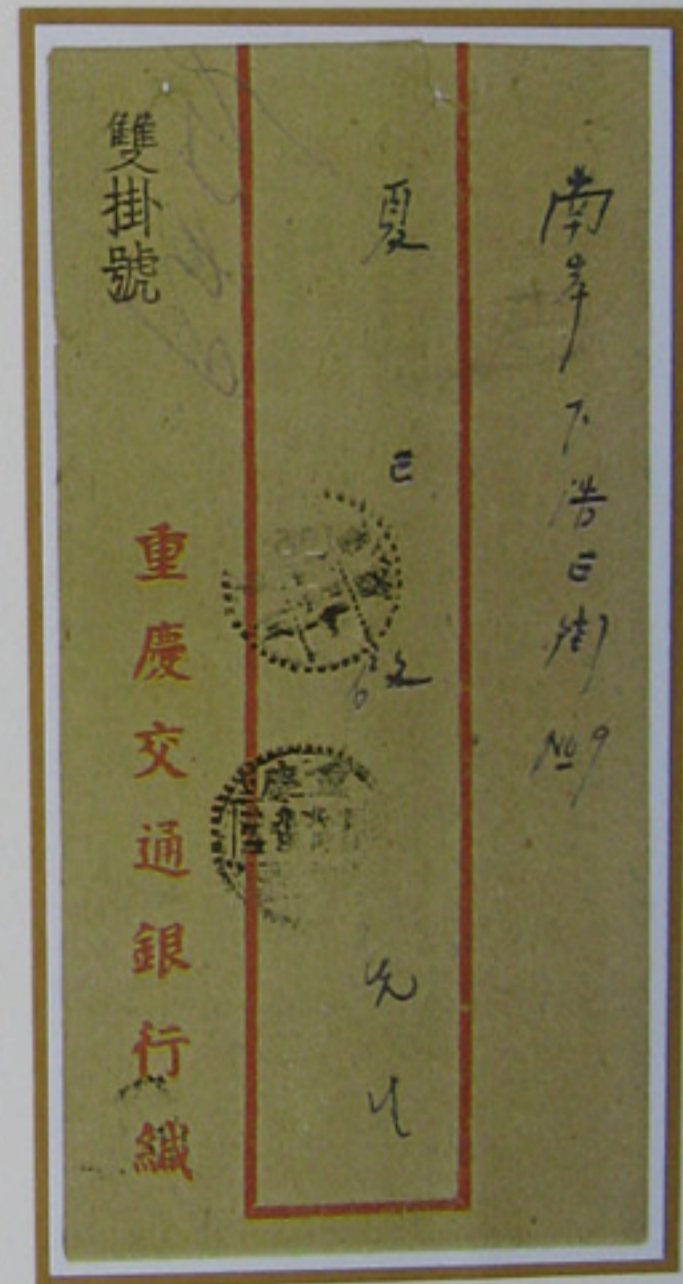 南岸下浩正街 No 9
夏 先生
雙掛號
重慶交通銀行緘
重慶